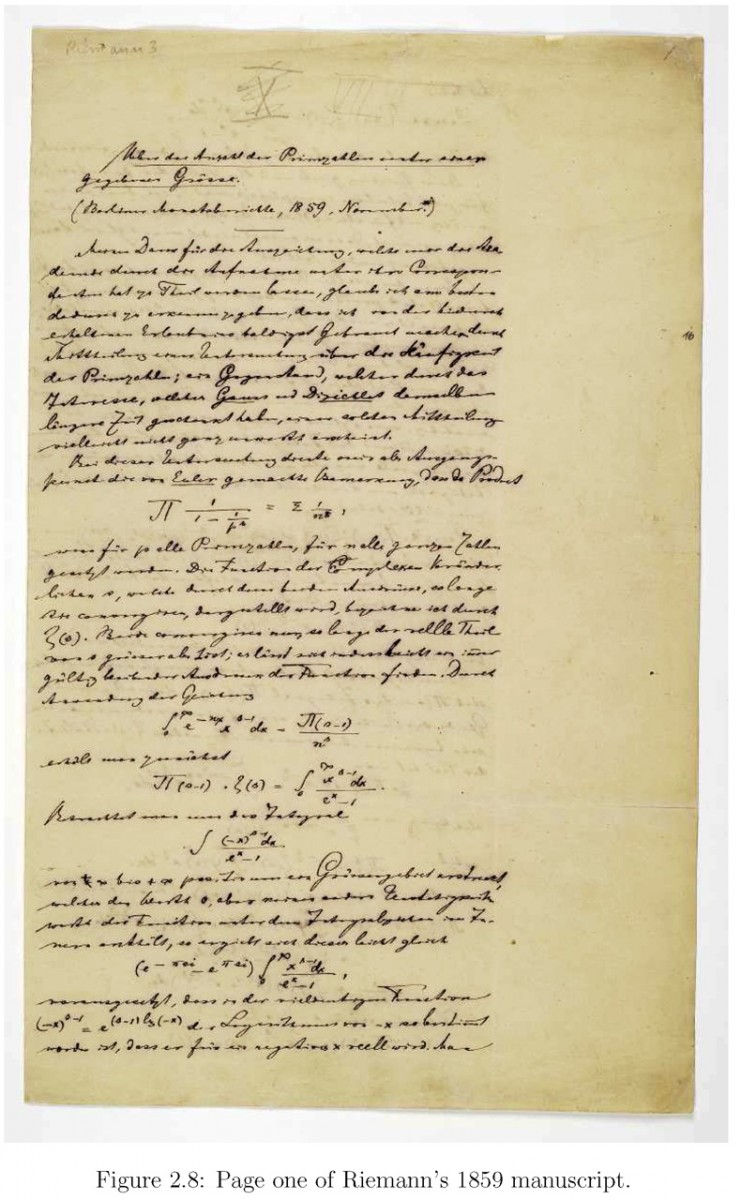 Riemann 3
Ueber die Anzahl der Primzahlen unter einer
gegebenen Grösse.
(Berliner Monatsberichte, 1859, November.)
Meinen Dank für die Auszeichnung, welche mir die Aka-
demie durch die Aufnahme unter ihre Correspon-
denten hat zu Theil werden lassen, glaube ich am besten
dadurch zu erkennen zu geben, dass ich von der hierdurch
erhaltenen Erlaubniss baldigst Gebrauch mache durch
Mittheilung einer Untersuchung über die Häufigkeit
der Primzahlen; ein Gegenstand, welcher durch das
Interesse, welches Gauss und Dirichlet demselben
längere Zeit geschenkt haben, einer solchen Mittheilung
vielleicht nicht ganz unwerth erscheint.
Bei dieser Untersuchung diente mir als Ausgangs-
punkt die von Euler gemachte Bemerkung, dass das Product
∏ 1/(1 − 1/p^s) = Σ 1/n^s,
wenn für p alle Primzahlen, für n alle ganzen Zahlen
gesetzt werden. Die Function der complexen Veränder-
lichen s, welche durch diese beiden Ausdrücke, so lange
sie convergiren, dargestellt wird, bezeichne ich durch
ζ(s). Beide convergiren nur, so lange der reelle Theil
von s grösser als 1 ist; es lässt sich indess leicht ein immer
gültig bleibender Ausdruck der Function finden. Durch
Anwendung der Gleichung
∫₀^∞ e^(−nx) x^(s−1) dx = Π(s−1)/n^s
erhält man zunächst
Π(s−1) · ζ(s) = ∫₀^∞ x^(s−1) dx/(e^x − 1).
Betrachtet man nun das Integral
∫ (−x)^(s−1) dx/(e^x − 1)
von +∞ bis +∞ positiv um ein Grössengebiet erstreckt,
welches den Werth 0, aber keinen andern Unstetigkeits-
werth der Function unter dem Integralzeichen im In-
nern enthält, so ergiebt sich dieses leicht gleich
(e^(−πsi) − e^(πsi)) ∫₀^∞ x^(s−1) dx/(e^x − 1),
vorausgesetzt, dass in der vieldeutigen Function
(−x)^(s−1) = e^((s−1) lg(−x)) der Logarithmus von −x so bestimmt
worden ist, dass er für ein negatives x reell wird. Man
Figure 2.8: Page one of Riemann's 1859 manuscript.